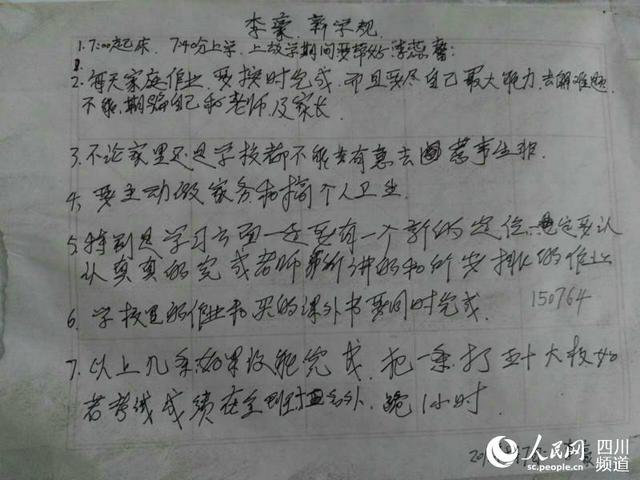 李豪 新家规
1. 7:00起床. 7:40分上学. 上放学期间要带好李蕊馨:
2. 每天家庭作业, 要按时完成, 而且要尽自己最大能力, 去解难题
不能, 欺骗自己和老师, 及家长.
3. 不论家里还是学校都不能去有意去惹事生非.
4. 要主动做家务和搞个人卫生.
5. 特别是学习方面一定要有一个新的定位, 一定要认
认真真的完成老师所讲的和所安排的作业
6. 学校里的作业和买的课外书要同时完成. 150764
7. 以上几条如果没能完成, 把一条打五十大板如
若考试成绩在全班 名外. 跪1小时.
人民网 四川频道
sc.people.com.cn